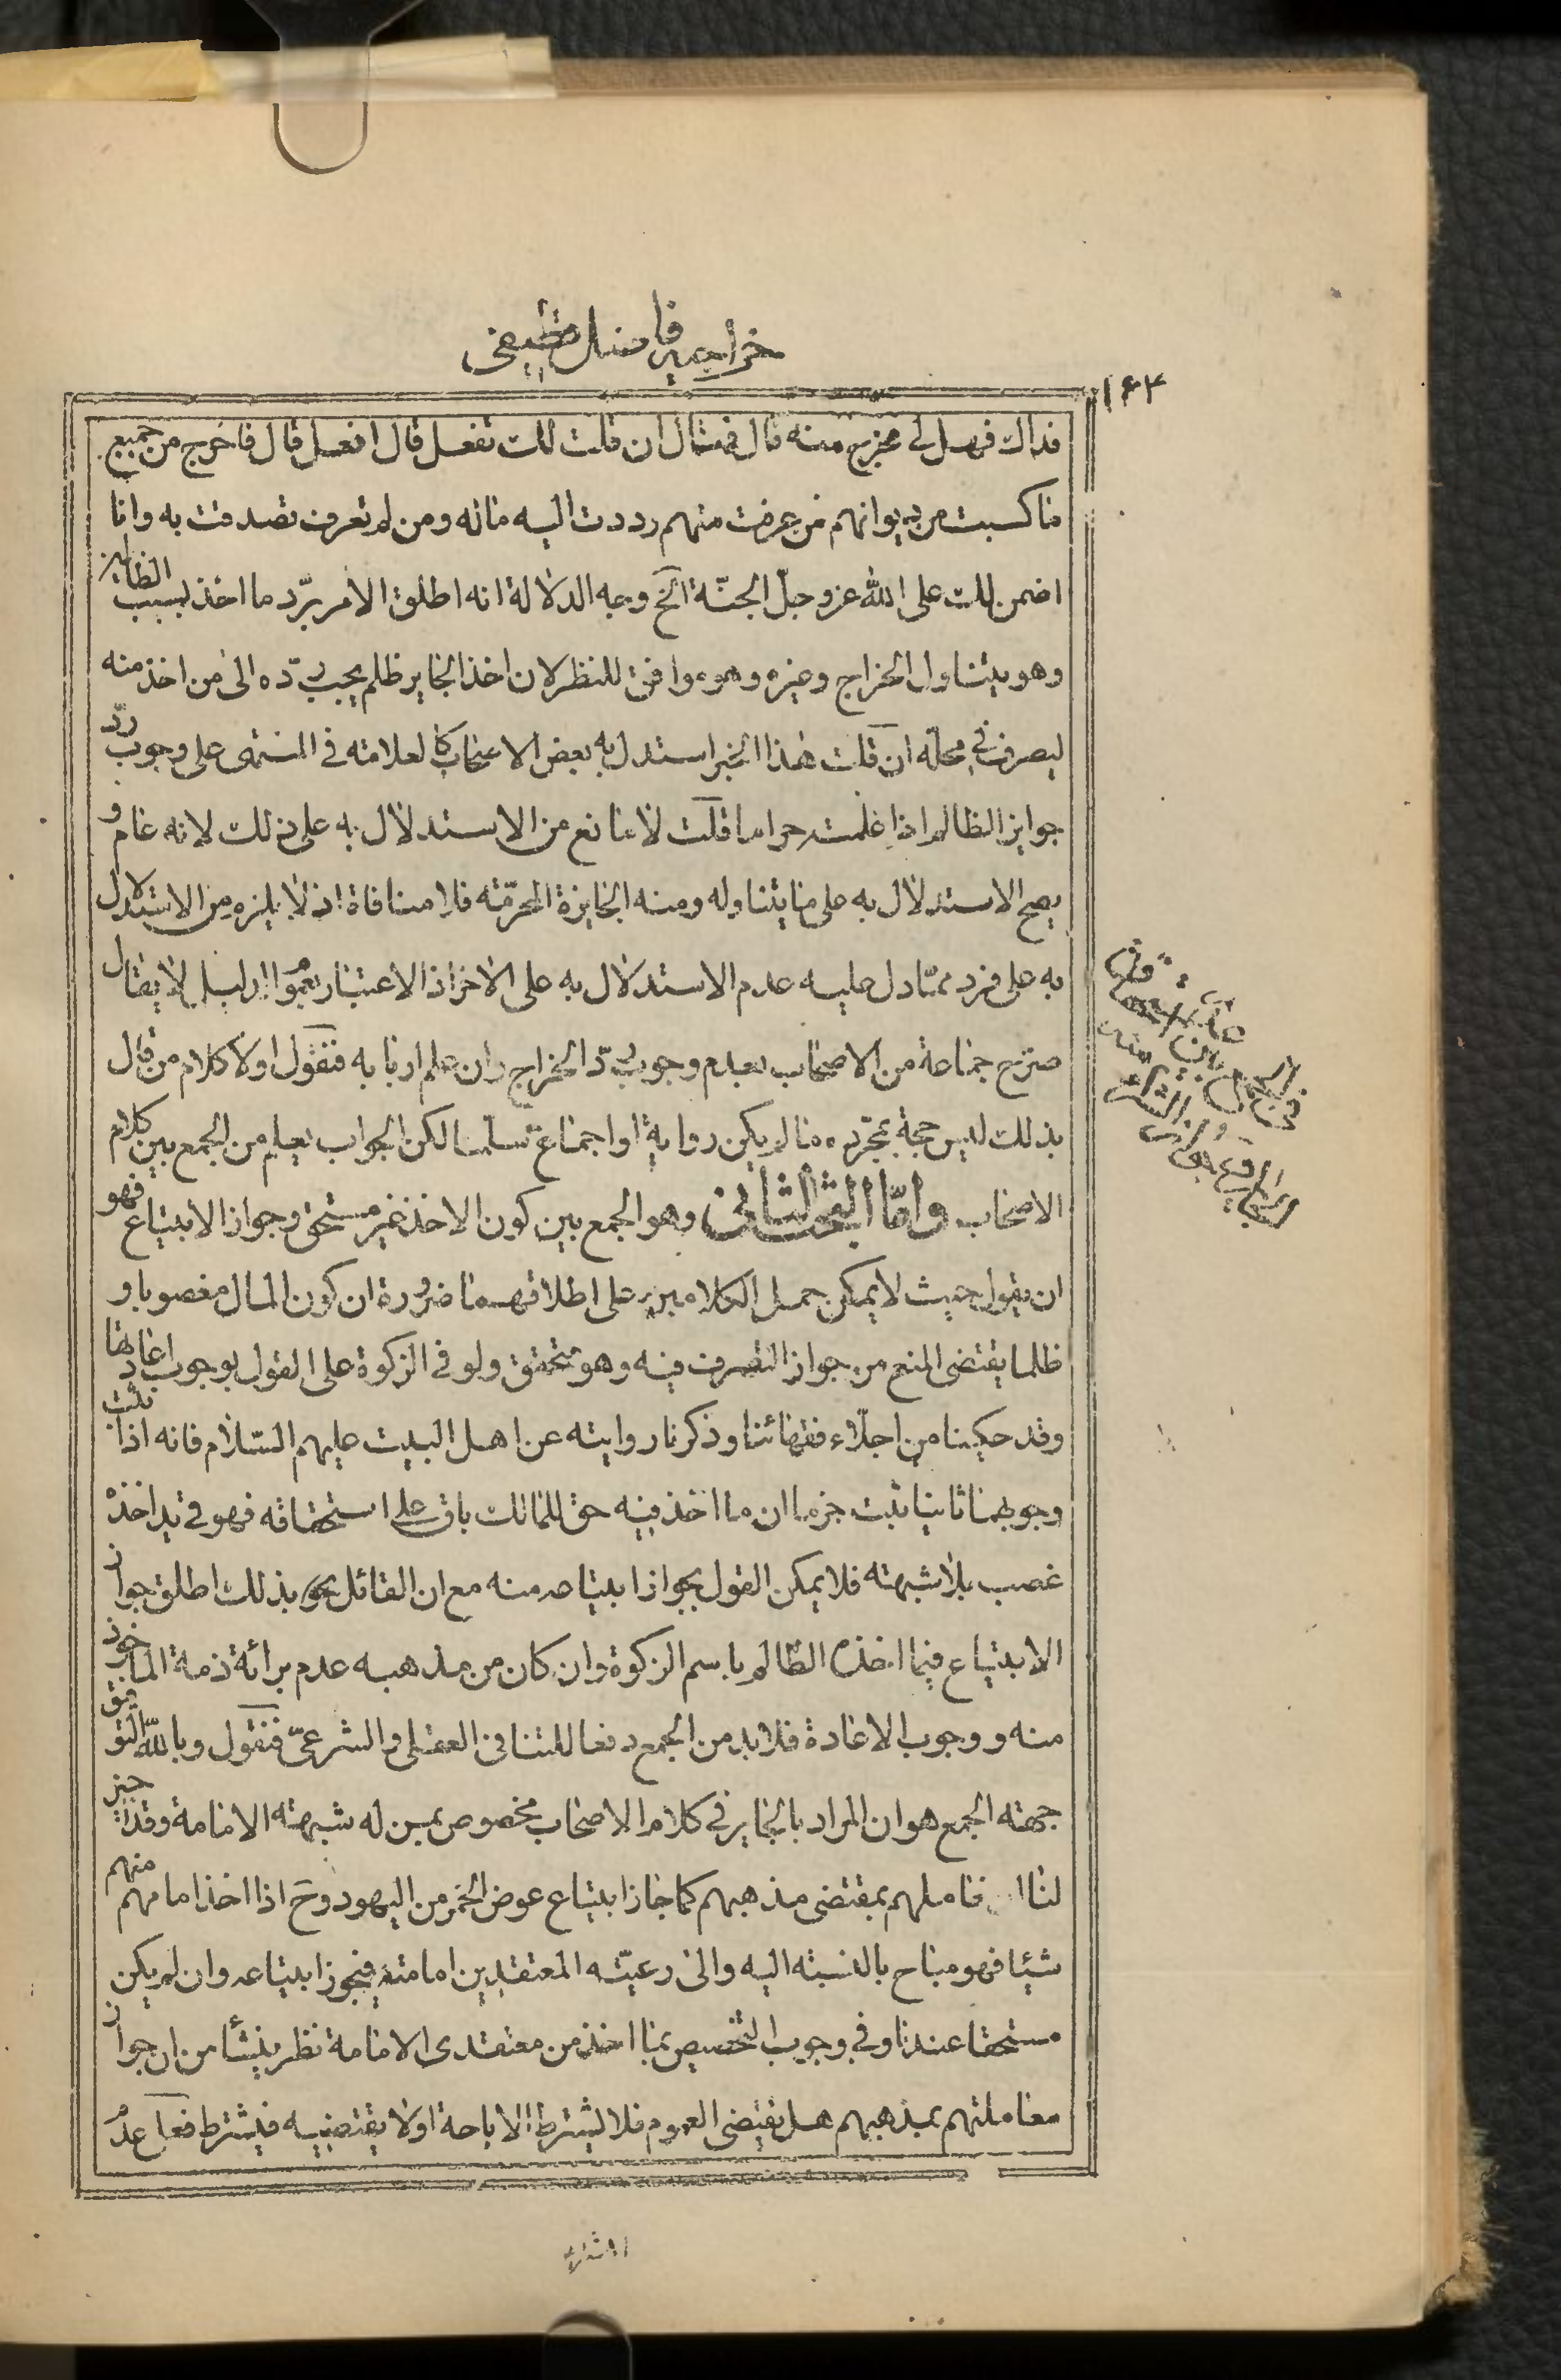 خراجیه فاضل قطیفی
۱۶۴
فداك فهل لی مخرج منه قال فقال ان قلت لك تفعل قال افعل قال فاخرج من جميع
ما كسبت من ديوانهم فمن عرفت منهم رددت اليه ماله ومن لم تعرف تصدقت به وانا
اضمن لك على الله عز وجلّ الجنّة الخ وجه الدلالة انه اطلق الامر بردّ ما اخذ بسبب الظالم
وهو يتناول الخراج وغيره وهو موافق للنظر لان اخذ الجاير ظلم يجب ردّه الى من اخذ منه
ليصرف فی محلّه ان قلت هذا الخبر استدل به بعض الاصحاب كالعلامته فى المنتهى على وجوب ردّ
جوايز الظالم اذا علمت حراما قلت لا مانع من الاستدلال به على ذلك لانه عام و
يصح الاستدلال به على ما يتناوله ومنه الجايزة المحرّمته فلا منافاة اذ لا يلزم من الاستدلال
به على فرد ممّا دل عليه عدم الاستدلال به على الاخر اذ الاعتبار بعموم الدليل لا يقال
صرّح جماعة من الاصحاب بعدم وجوب ردّ الخراج وان علم اربابه فنقول اولا كلام من قال
بذلك ليس حجة بمجرّده ما لم يكن رواية او اجماع سلّمنا لكن الجواب يعلم من الجمع بين كلام
الاصحاب وامّا البحث الثانى وهو الجمع بين كون الاخذ غير مستحق وجواز الابتياع فهو
ان نقول حيث لا يمكن حمل الكلامين على اطلاقهما ضرورة ان كون المال مغصوبا و
ظلما يقتضى المنع من جواز التصرف فيه وهو متحقق ولو فى الزكوة على القول بوجوب اعادتها
وقد حكينا من اجلّاء فقهائنا وذكرنا روايته عن اهل البيت عليهم السّلام فانه اذا ثبت
وجوبها ثانيا ثبت جزما ان ما اخذ فيه حق للمالك باق على استحقاقه فهو فى يد اخذه
غصب بلا شبهته فلا يمكن القول بجواز ابتياعه منه مع ان القائل بذلك اطلق جواز
الابتياع فيما اخذه الظّالم باسم الزكوة وان كان من مذهبه عدم برائة ذمة الماخوذ
منه ووجوب الاعادة فلا بد من الجمع دفعا للتنافى العقلى والشرعىّ فنقول وبالله التوفيق
جهته الجمع هو ان المراد بالجاير فى كلام الاصحاب مخصوص بمن له شبهته الامامة وقد اجيز
لنا ان نعاملهم بمقتضى مذهبهم كما جاز ابتياع عوض الخمر من اليهود وح اذا اخذ امامهم منهم
شيئا فهو مباح بالنسبته اليه والى رعيّته المعتقدين امامته فيجوز ابتياعه وان لم يكن
مستحقا عندنا وفى وجوب التخصيص بما اخذ من معتقدى الامامة نظر ينشأ من ان جواز
معاملتهم بمذهبهم هل يقتضى العموم فلا يشترط الاباحة او لا يقتضيه فيشترط فعلى عدم